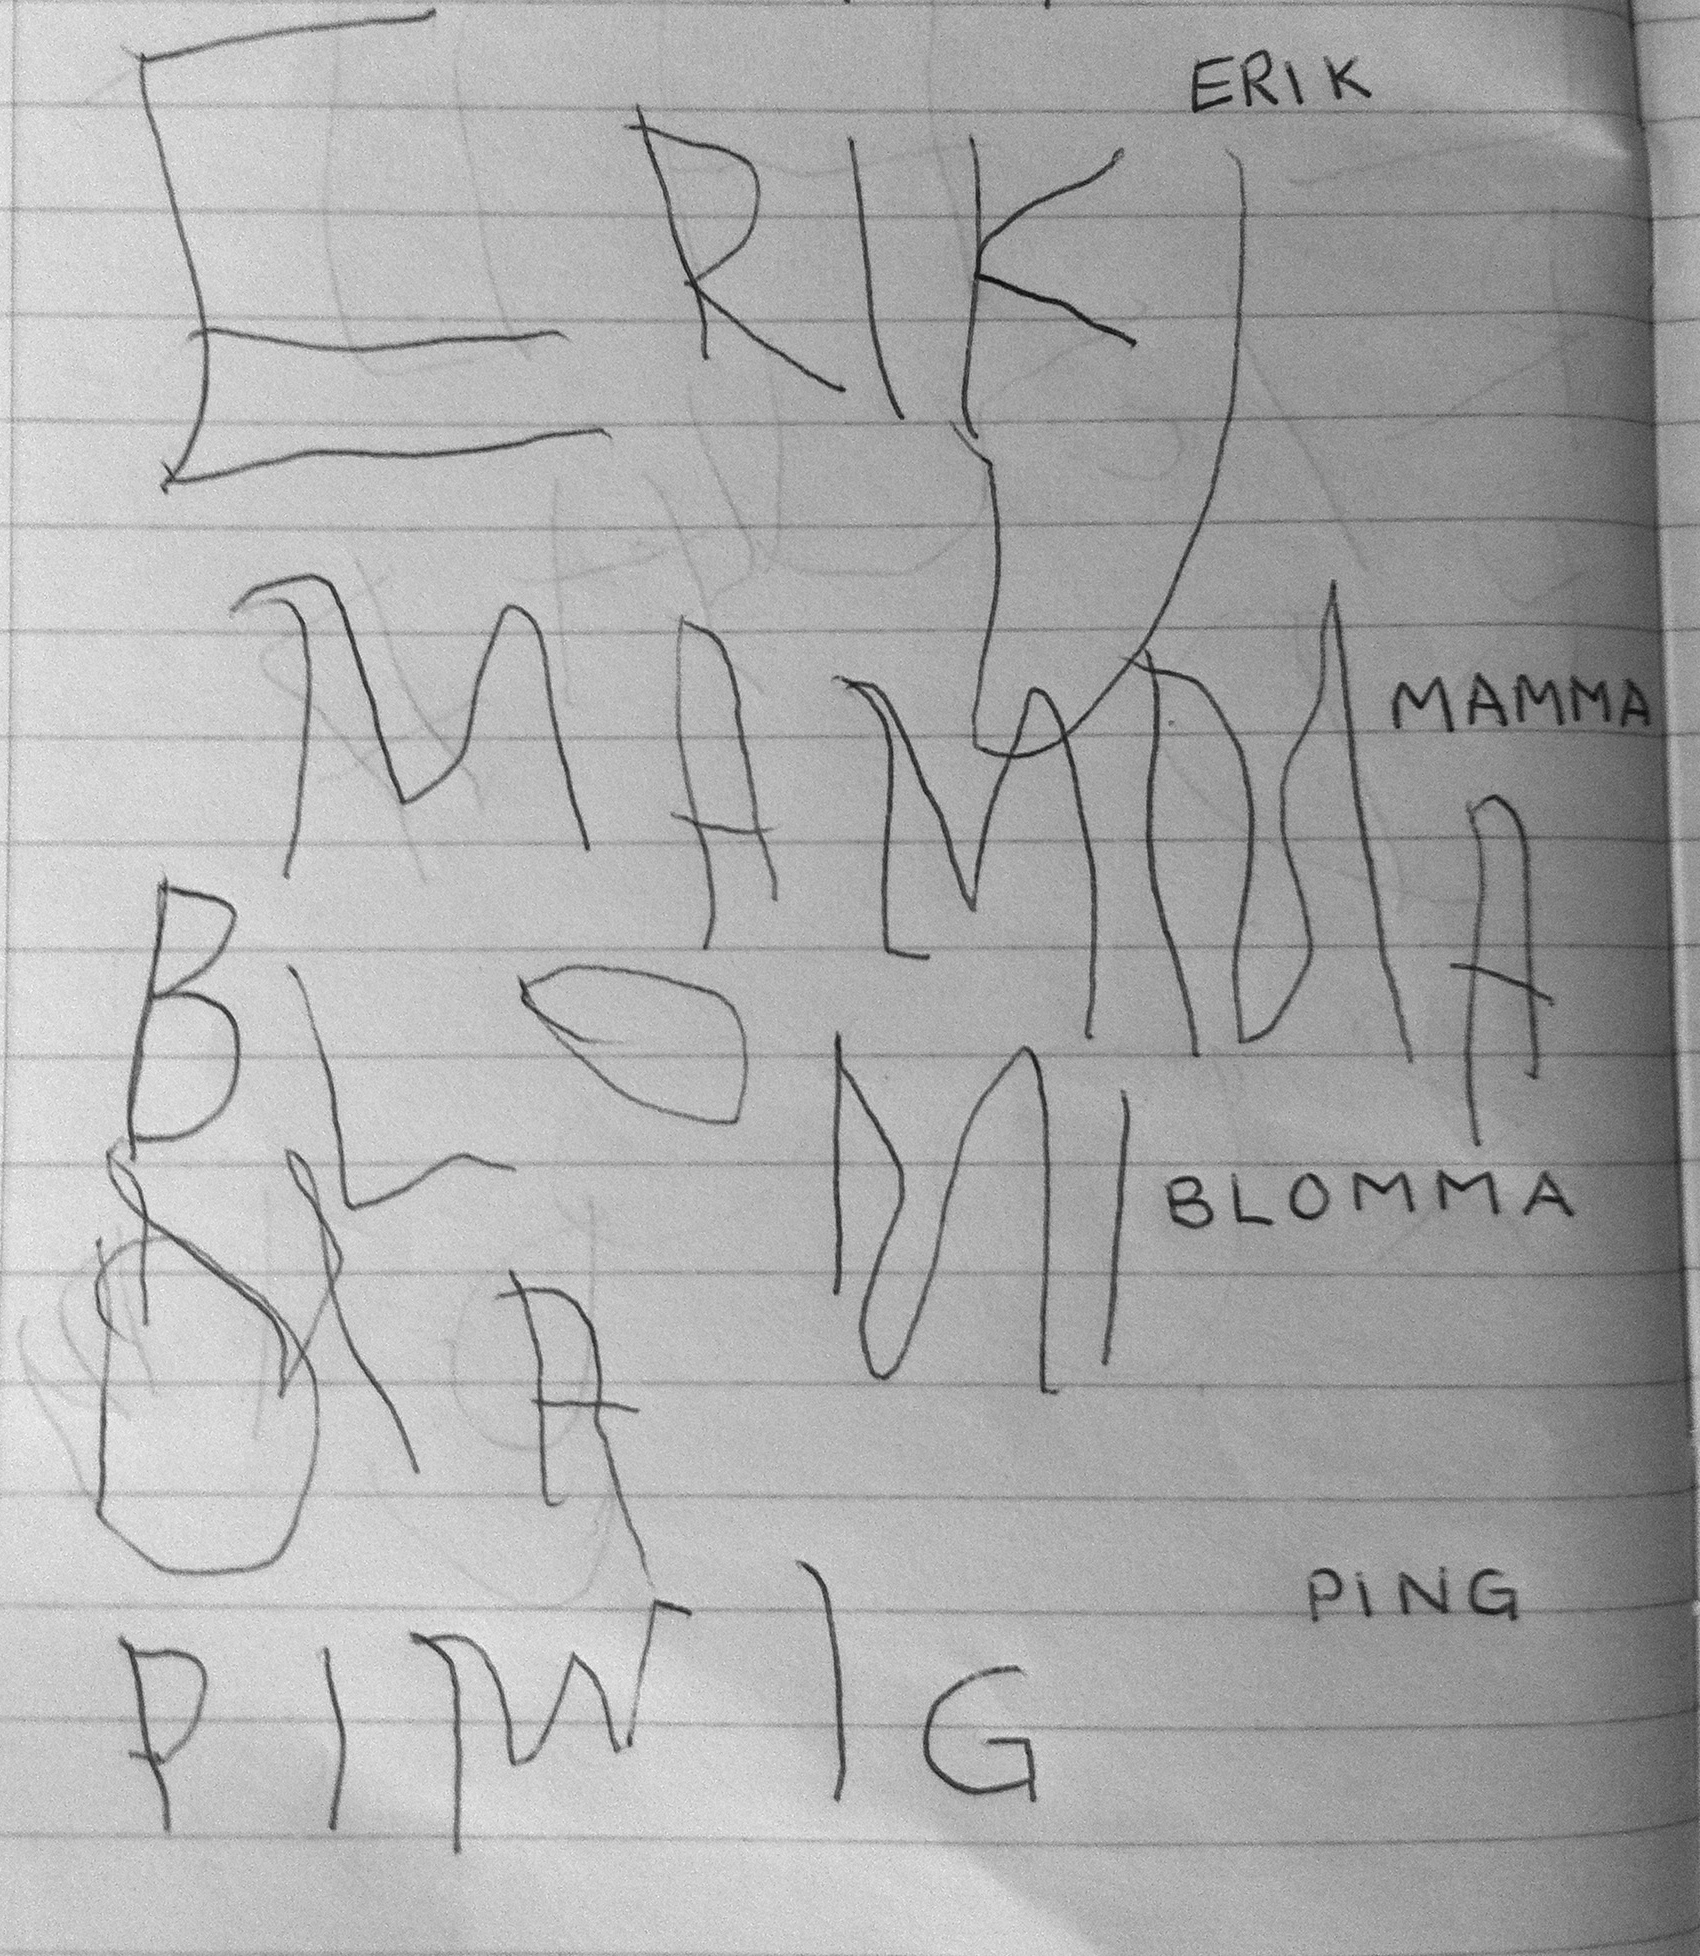 ERIK ERIK
MAMMA MAMMA
BLOM BLOMMA
MA
PING PING